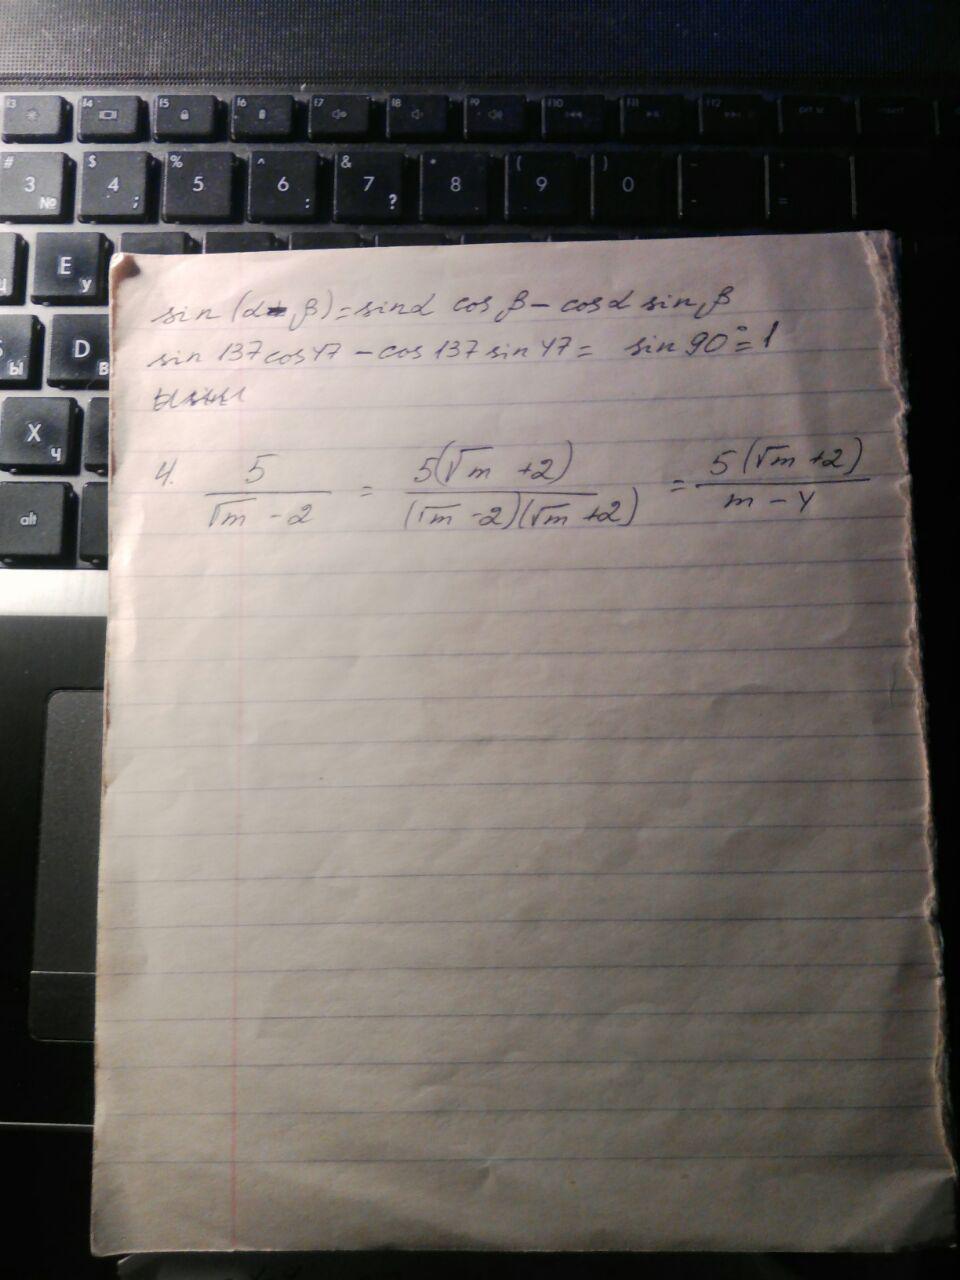 F3 F4 F5 F6 F7 F8 F9 F10 F11 F12 prt sc insert
# 3 № $ 4 ; % 5 ^ 6 : & 7 ? * 8 ( 9 ) 0 - - + =
E у
D
X ч
alt
sin (α - β) = sinα cos β - cosα sin β
sin 137 cos 47 - cos 137 sin 47 = sin 90° = 1
4. 5/(√m - 2) = 5(√m + 2)/((√m - 2)(√m + 2)) = 5(√m + 2)/(m - 4)